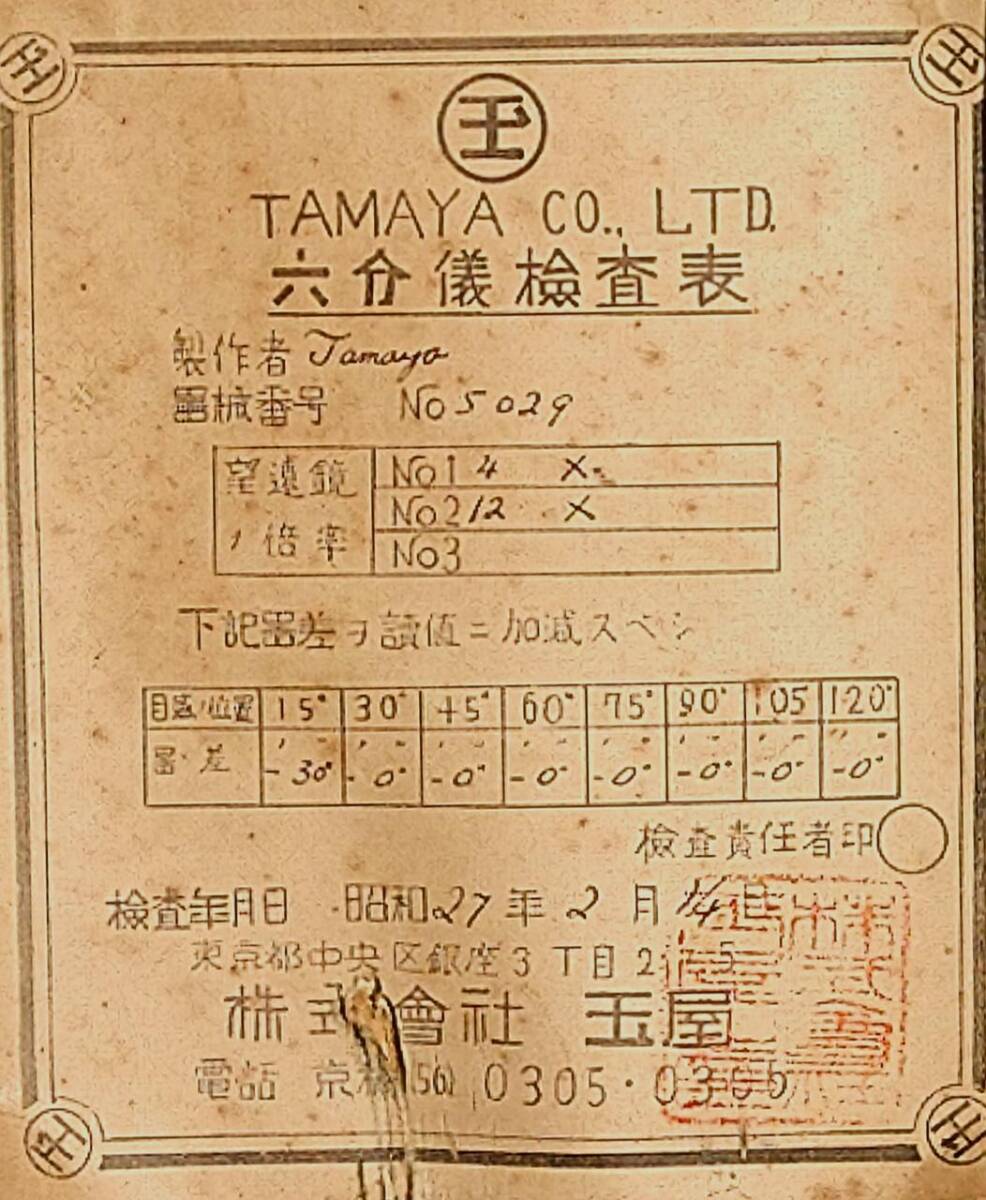 玉
TAMAYA CO., LTD.
六分儀檢查表
製作者 Tamaya
器械番号 No 5029
望遠鏡ノ倍率
No1 4 X
No2 12 X
No3
下記器差ヲ讀値ニ加減スベシ
目盛ノ位置 15° 30° 45° 60° 75° 90° 105 120°
器差 -30" -0" -0" -0" -0" -0" -0" -0"
檢查責任者印
檢查年月日 昭和27年2月14日
東京都中央区銀座3丁目2 5
株式會社 玉屋
電話 京橋(56) 0305・0306